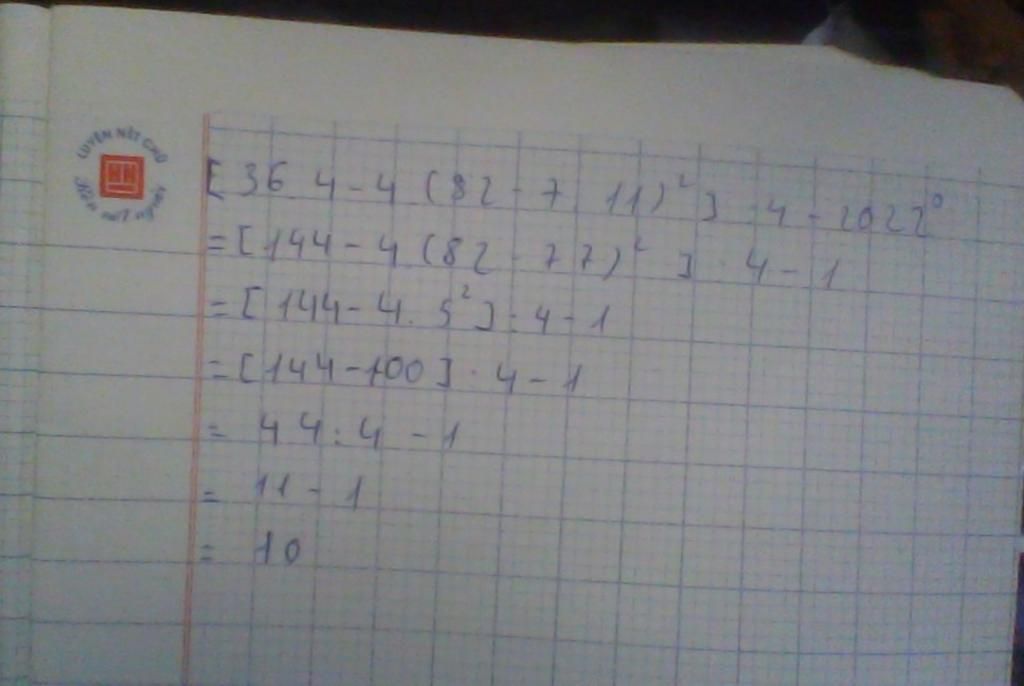 LUYỆN NÉT CHỮ
Rèn nết người
[36 4 - 4 (82 - 7 11)² ] : 4 - 2022⁰
= [144 - 4 (82 - 77)² ] : 4 - 1
= [144 - 4 . 5²] : 4 - 1
= [144 - 100] : 4 - 1
= 44 : 4 - 1
= 11 - 1
= 10